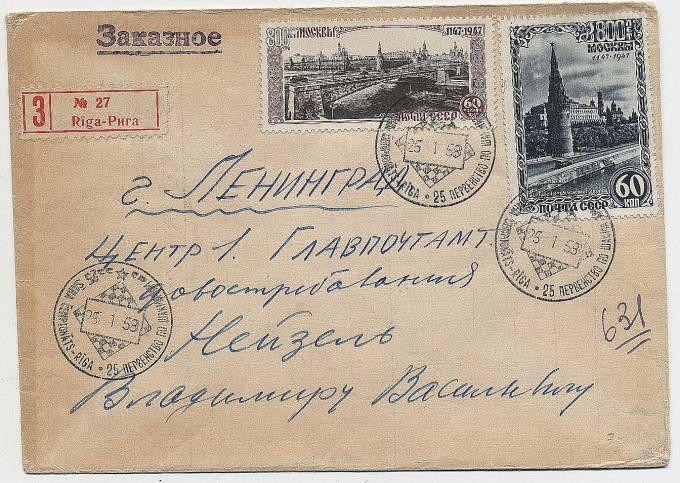 Заказное
800 лет МОСКВЫ 1147·1947
60 коп
ПОЧТА СССР
800 лет
МОСКВЫ
1147·1947
60
КОП
ПОЧТА СССР
З № 27
Rīga-Рига
25 1 58
RĪGA · 25 ПЕРВЕНСТВО ПО
25 1 58
ČEMPIONĀTS-RĪGA · 25 ПЕРВЕНСТВО ПО ШАХМ
25 1 58
ČEMPIONĀTS-RĪGA · 25 ПЕРВЕНСТВО ПО
г. Ленинград
Центр 1. Главпочтамт
довостребования
Нейзель
Владимиру Васильевичу
631